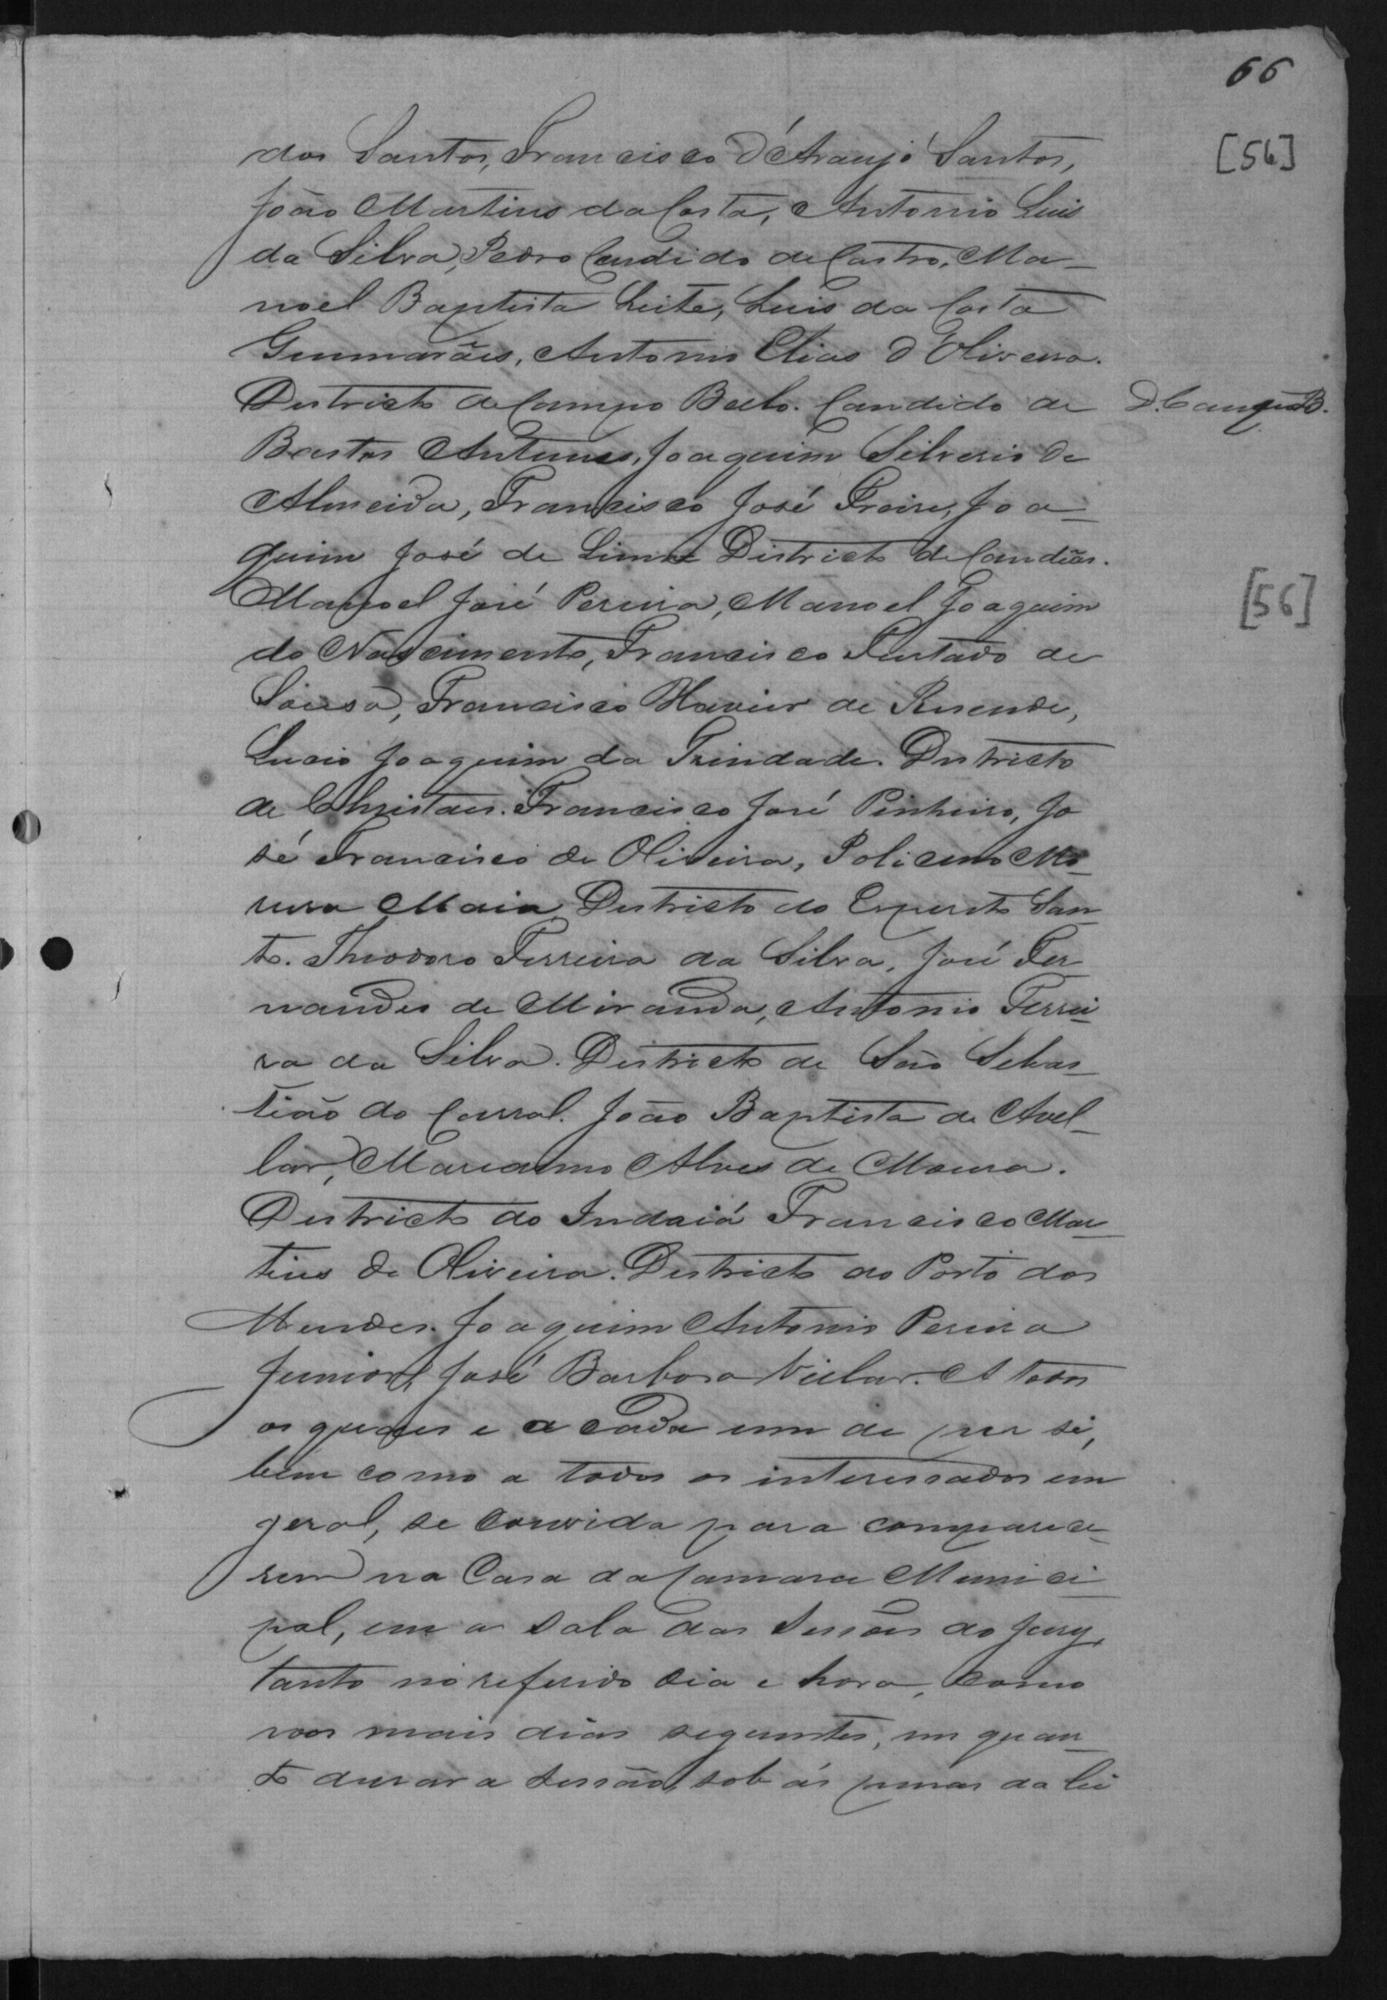 66
[56]
dos Santos, Francisco d'Araujo Santos,
João Martins da Costa, Antonio Luis
da Silva, Pedro Candido de Castro, Ma-
noel Baptista Leite, Luis da Costa
Guimarães, Antonio Elias d'Oliveira.
Districto de Campo Bello. Candido de
D. Campo B.
Bastos Antunes, Joaquim Silverio de
Almeida, Francisco José Freire, Joa-
quim José de Lima Districto de Candêas.
Manoel José Pereira, Manoel Joaquim
[56]
do Nascimento, Francisco Furtado de
Sousa, Francisco Xavier de Resende,
Lucio Joaquim da Trindade. Districto
de Christaes. Francisco José Pinheiro, Jo
sé Francisco de Oliveira, Policeno Mo-
reira Maia Districto do Espirito San
to. Theodoro Ferreira da Silva, José Fer
nandes de Miranda, Antonio Ferrei-
ra da Silva. Districto de São Sebas-
tião do Curral. João Baptista de Avel-
lar, Marianno Alves de Moura.
Districto do Indaiá Francisco Mar-
tins de Oliveira. Districto do Porto dos
Mendes. Joaquim Antonio Pereira
Junior, José Barbosa Villar. A todos
os quaes e a cada um de per si,
bem como a todos os interessados em
geral, se convida para comparece-
rem na Casa da Camara Munici-
pal, em a sala das Sessões do Jury,
tanto no referido dia e hora, como
nos mais dias seguintes, em quan-
to durar a sessão, sob as penas da lei